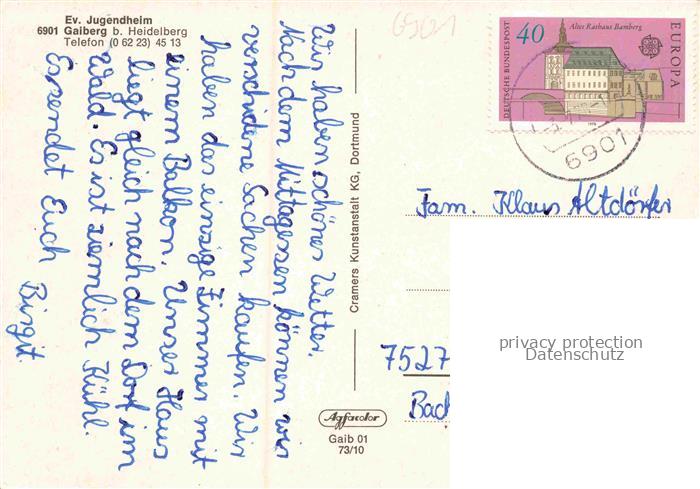 Ev. Jugendheim
6901 Gaiberg b. Heidelberg
Telefon (0 62 23) 45 13
Wir haben schönes Wetter.
Nach dem Mittagessen können wir
verschidene Sachen kaufen. Wir
haben das einzige Zimmer mit
einem Balkon. Unser Haus
liegt gleich nach dem Dorf im
Wald. Es ist ziemlich Kühl.
Es sendet Euch
Birgit.
Cramers Kunstanstalt KG, Dortmund
Agfacolor
Gaib 01
73/10
6901
DEUTSCHE BUNDESPOST
40
Altes Rathaus Bamberg
EUROPA
1978
6901
Fam. Klaus Altdörfer
7527
Bad
privacy protection
Datenschutz